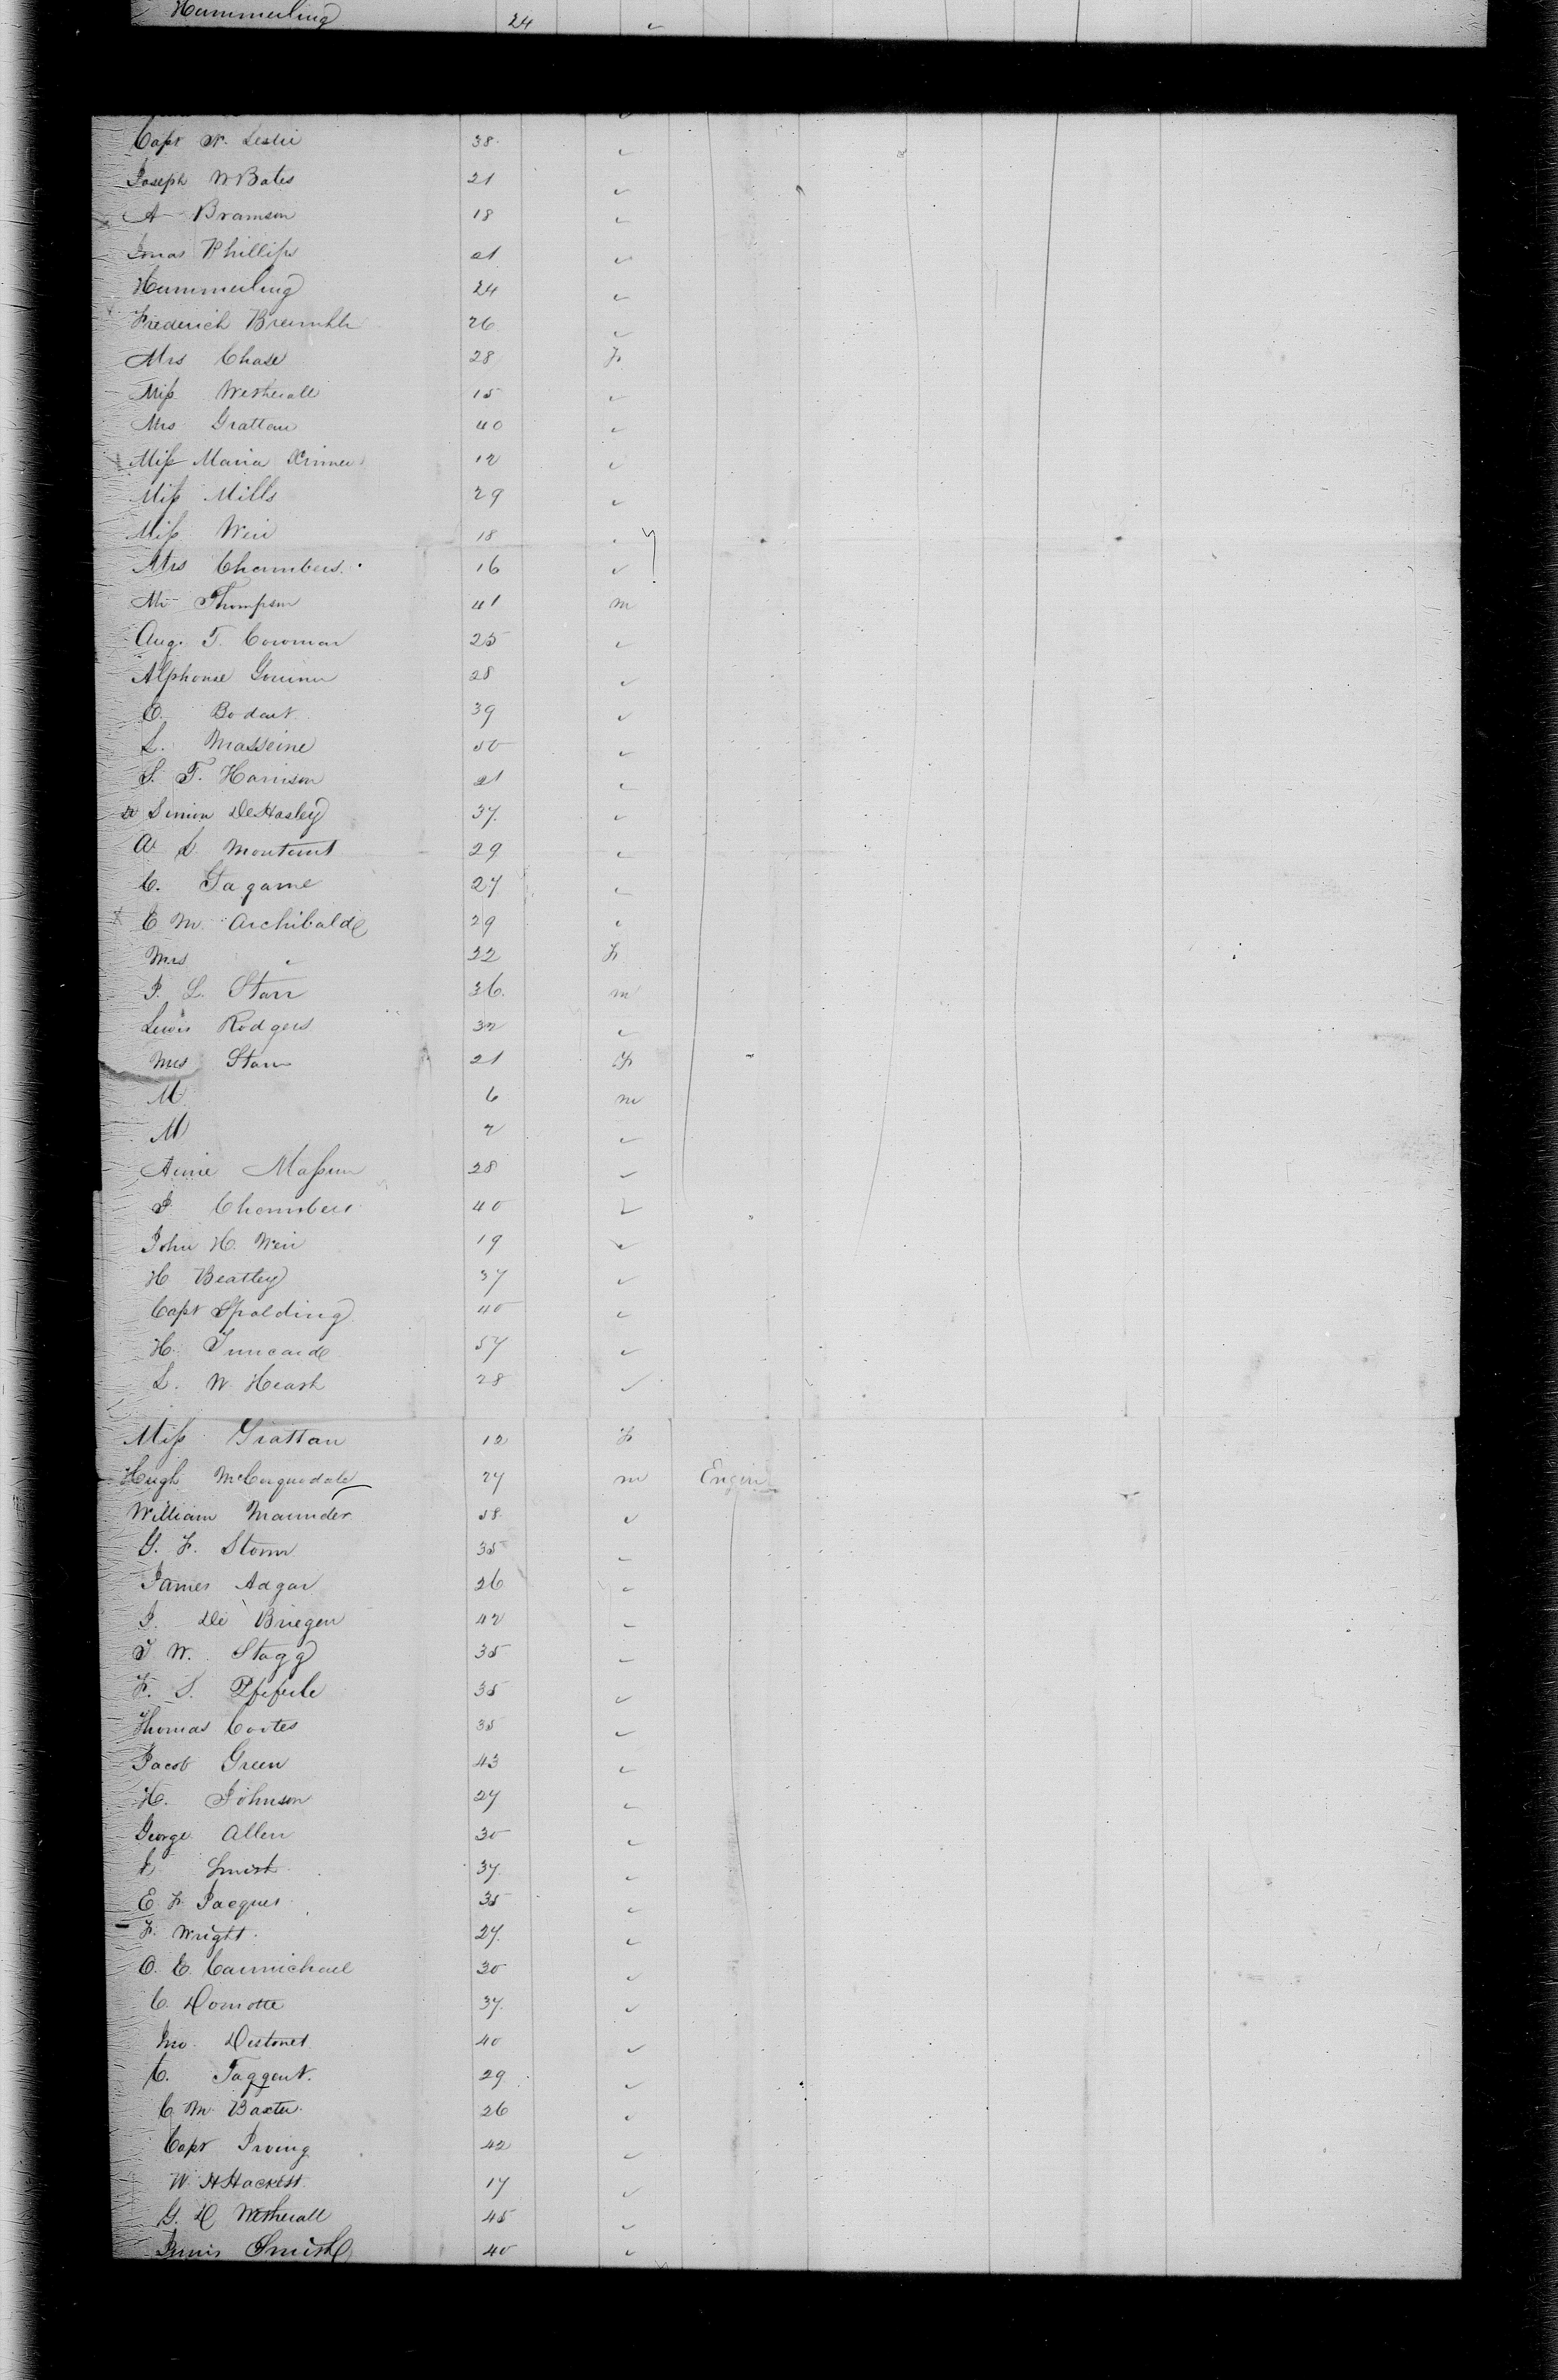 Hummerling 24 ✓
Capt W. Leslie 38 ✓
Joseph W Bates 21 ✓
A Bramson 18 ✓
Jonas Phillips 21 ✓
Hummerling 24 ✓
Frederich 26 ✓
Mrs Chase 28 F
Miss Wetherall 15 ✓
Mrs Grattan 40 ✓
Miss Maria 12 ✓
Miss Mills 29 ✓
Miss Weir 18
Mrs Chambers 16 ✓
Mr Thompson 41 m
Aug. T. Cowman 25 ✓
Alphonse 28 ✓
Bodart 39 ✓
L. Masseine 50 ✓
S. T. Harrison 21 ✓
Simon DeHasley 37 ✓
A L 29 ✓
C. Gagame 27 ✓
E M Archibald 29 ✓
Mrs ✓ 32 F
J. L. Starr 36 m
Lewis Rodgers 32 ✓
Mrs Starr 21 F
M 6 m
M 2 ✓
28 ✓
J Chambers 40 ✓
John H. Weir 19 ✓
H Beattey 37 ✓
Capt Spalding 40 ✓
H. 57 ✓
L. W. Heash 28 ✓
Miss Grattan 12 F
Hugh McCorquodale 27 m Engin
William Maunder 58 ✓
G. F. Storm 35 ✓
James Adgar 26 ✓
J. De Briegen 42 ✓
J W. Stagg 35 ✓
F. S. 35 ✓
Thomas Cootes 35 ✓
Jacob Green 43 ✓
H. Johnson 27 ✓
George Allen 30 ✓
Smith 37 ✓
E F Jacques 35 ✓
F. Wright 27 ✓
O. E. Carmichael 30 ✓
C. Domotte 37 ✓
Jno. Destonet 40 ✓
C. Taggent. 29 ✓
C M Baxter 26 ✓
Capt Irving 42 ✓
W. H Hackett 17 ✓
G. D Wetherall 45 ✓
Smith 40 ✓